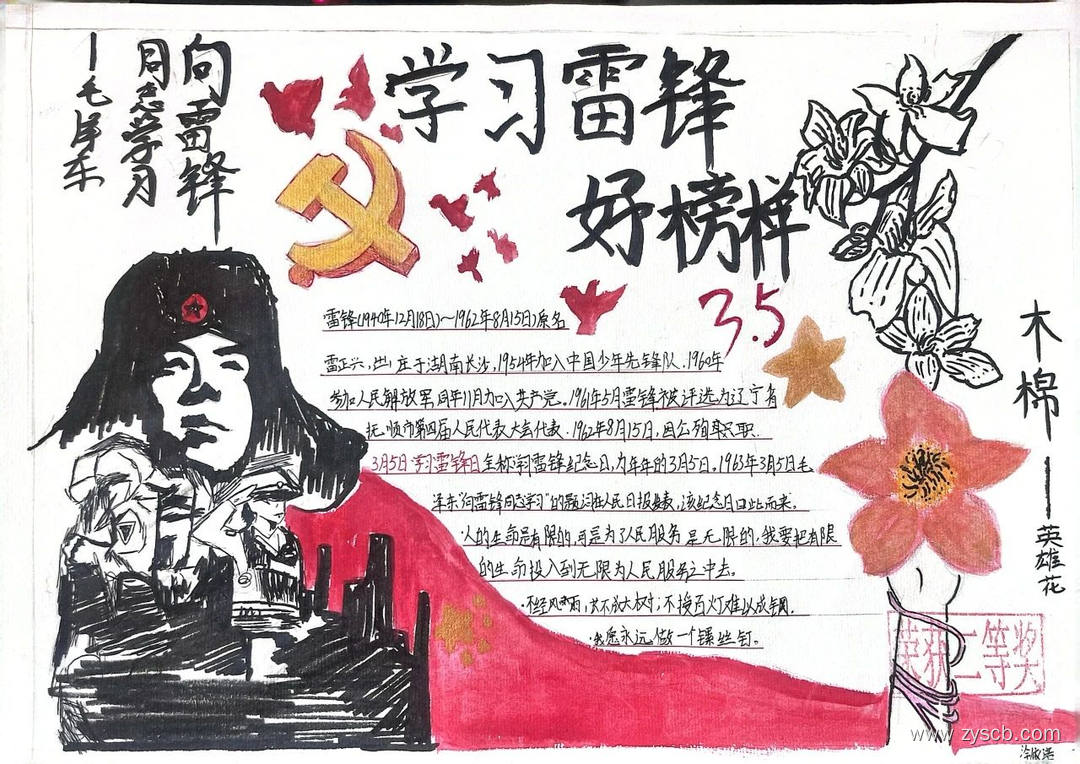 向雷锋
同志学习
—毛泽东
学习雷锋
好榜样
3.5
雷锋(1940年12月18日)~1962年8月15日)原名
雷正兴,出庄于湖南长沙,1954年加入中国少年先锋队,1960年
参加人民解放军同年11月加入共产党,1961年5月雷锋被评选为辽宁省
抚顺市第四届人民代表大会代表.1962年8月15日,因公殉职.
3月5日"学习雷锋日全称学雷锋纪念日,为年年的3月5日,1963年3月5日毛
泽东"向雷锋同志学习"的题词在人民日报发表,该纪念日由此而来.
人的生命是有限的,可是为了人民服务是无限的,我要把有限
的生命投入到无限为人民服务之中去.
不经风雨,长不成大树;不接百灯难以成钢.
我愿永远做一个螺丝钉。
木棉—英雄花
荣获二等奖
www.zyscb.com